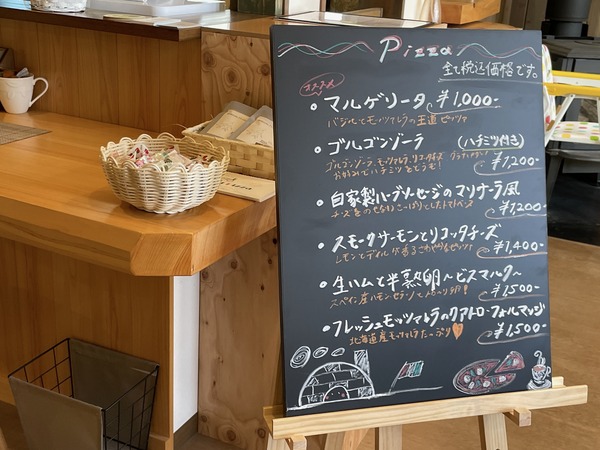 Pizza
全て税込価格です。
オススメ
・マルゲリータ ¥1,000-
バジルとモッツァレラの王道ピッツァ
・ゴルゴンゾーラ (ハチミツ付き)
ゴルゴンゾーラ、モッツァレラ、リコッタチーズ
お好みでハチミツをどうぞ! ¥1,200-
・自家製ハーブソーセージのマリナーラ風
チーズをのせない トマトベース ¥1,200-
・スモークサーモンとリコッタチーズ
レモンとディルが ピッツァ ¥1,400-
・生ハムと半熟卵〜ビスマルク〜
スペイン産ハモンセラーノ 卵! ¥1,500-
・フレッシュモッツァレラのクアトロ・フォルマッジ
北海道産モッツァレラたっぷり ¥1,500-